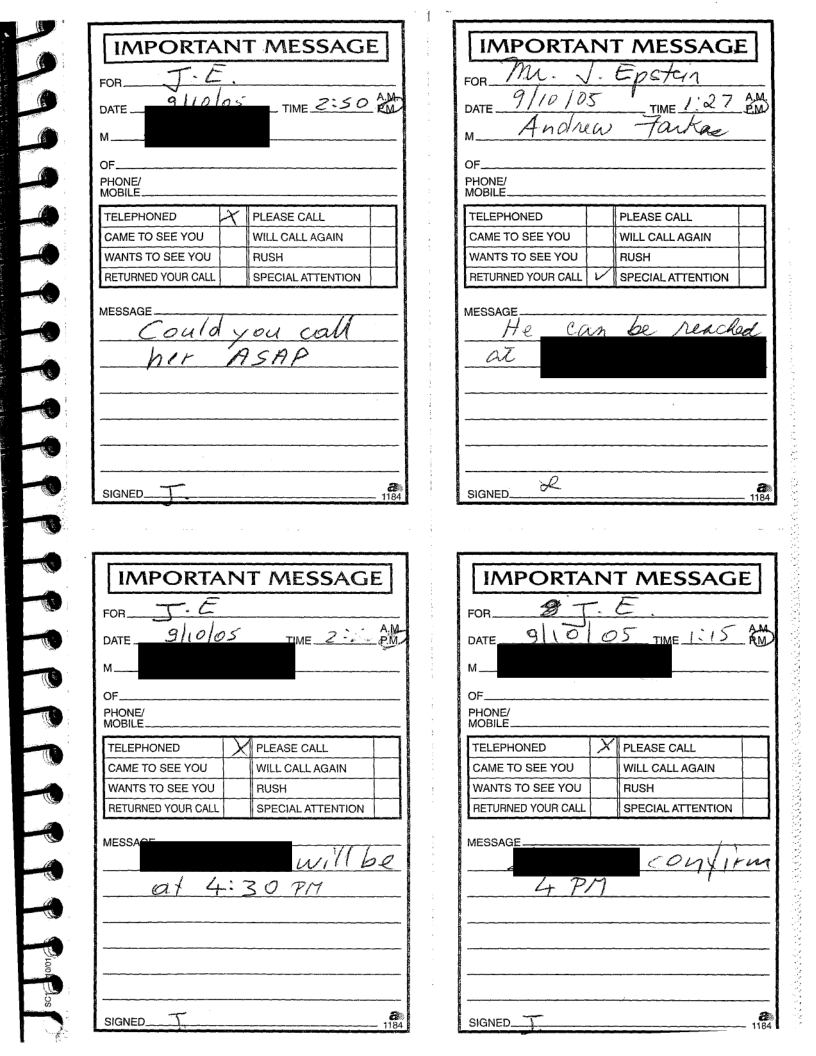 IMPORTANT MESSAGE
FOR J.E.
DATE 9/10/05 TIME 2:50 A.M. P.M.
M
OF
PHONE/
MOBILE
TELEPHONED X PLEASE CALL
CAME TO SEE YOU WILL CALL AGAIN
WANTS TO SEE YOU RUSH
RETURNED YOUR CALL SPECIAL ATTENTION
MESSAGE
Could you call
her ASAP
SIGNED J.
1184
IMPORTANT MESSAGE
FOR Mr. J. Epstein
DATE 9/10/05 TIME 1:27 A.M. P.M.
M Andrew Farkas
OF
PHONE/
MOBILE
TELEPHONED PLEASE CALL
CAME TO SEE YOU WILL CALL AGAIN
WANTS TO SEE YOU RUSH
RETURNED YOUR CALL ✓ SPECIAL ATTENTION
MESSAGE
He can be reached
at
SIGNED
1184
IMPORTANT MESSAGE
FOR J.E
DATE 9/10/05 TIME 2: A.M. P.M.
M
OF
PHONE/
MOBILE
TELEPHONED X PLEASE CALL
CAME TO SEE YOU WILL CALL AGAIN
WANTS TO SEE YOU RUSH
RETURNED YOUR CALL SPECIAL ATTENTION
MESSAGE
will be
at 4:30 PM
SIGNED J
1184
IMPORTANT MESSAGE
FOR J.E.
DATE 9/10/05 TIME 1:15 A.M. P.M.
M
OF
PHONE/
MOBILE
TELEPHONED X PLEASE CALL
CAME TO SEE YOU WILL CALL AGAIN
WANTS TO SEE YOU RUSH
RETURNED YOUR CALL SPECIAL ATTENTION
MESSAGE
confirm
4 PM
SIGNED J
1184